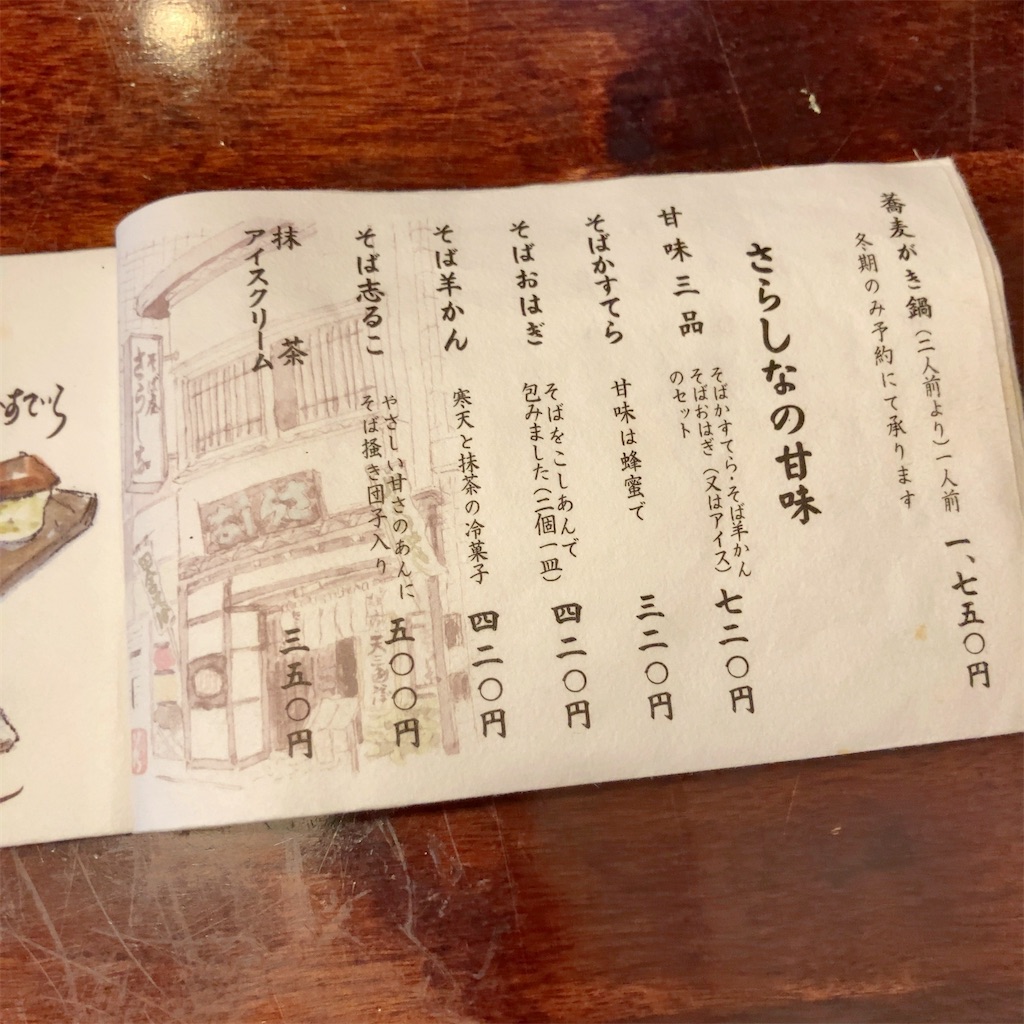 蕎麦がき鍋（二人前より）一人前 一、七五〇円
冬期のみ予約にて承ります
さらしなの甘味
甘味三品
そばかすてら・そば羊かん
そばおはぎ（又はアイス）
のセット
七二〇円
そばかすてら 甘味は蜂蜜で 三二〇円
そばおはぎ
そばをこしあんで
包みました（二個一皿）
四二〇円
そば羊かん 寒天と抹茶の冷菓子 四二〇円
そば志るこ
やさしい甘さのあんに
そば掻き団子入り
五〇〇円
抹茶
アイスクリーム
三五〇円
さらしな